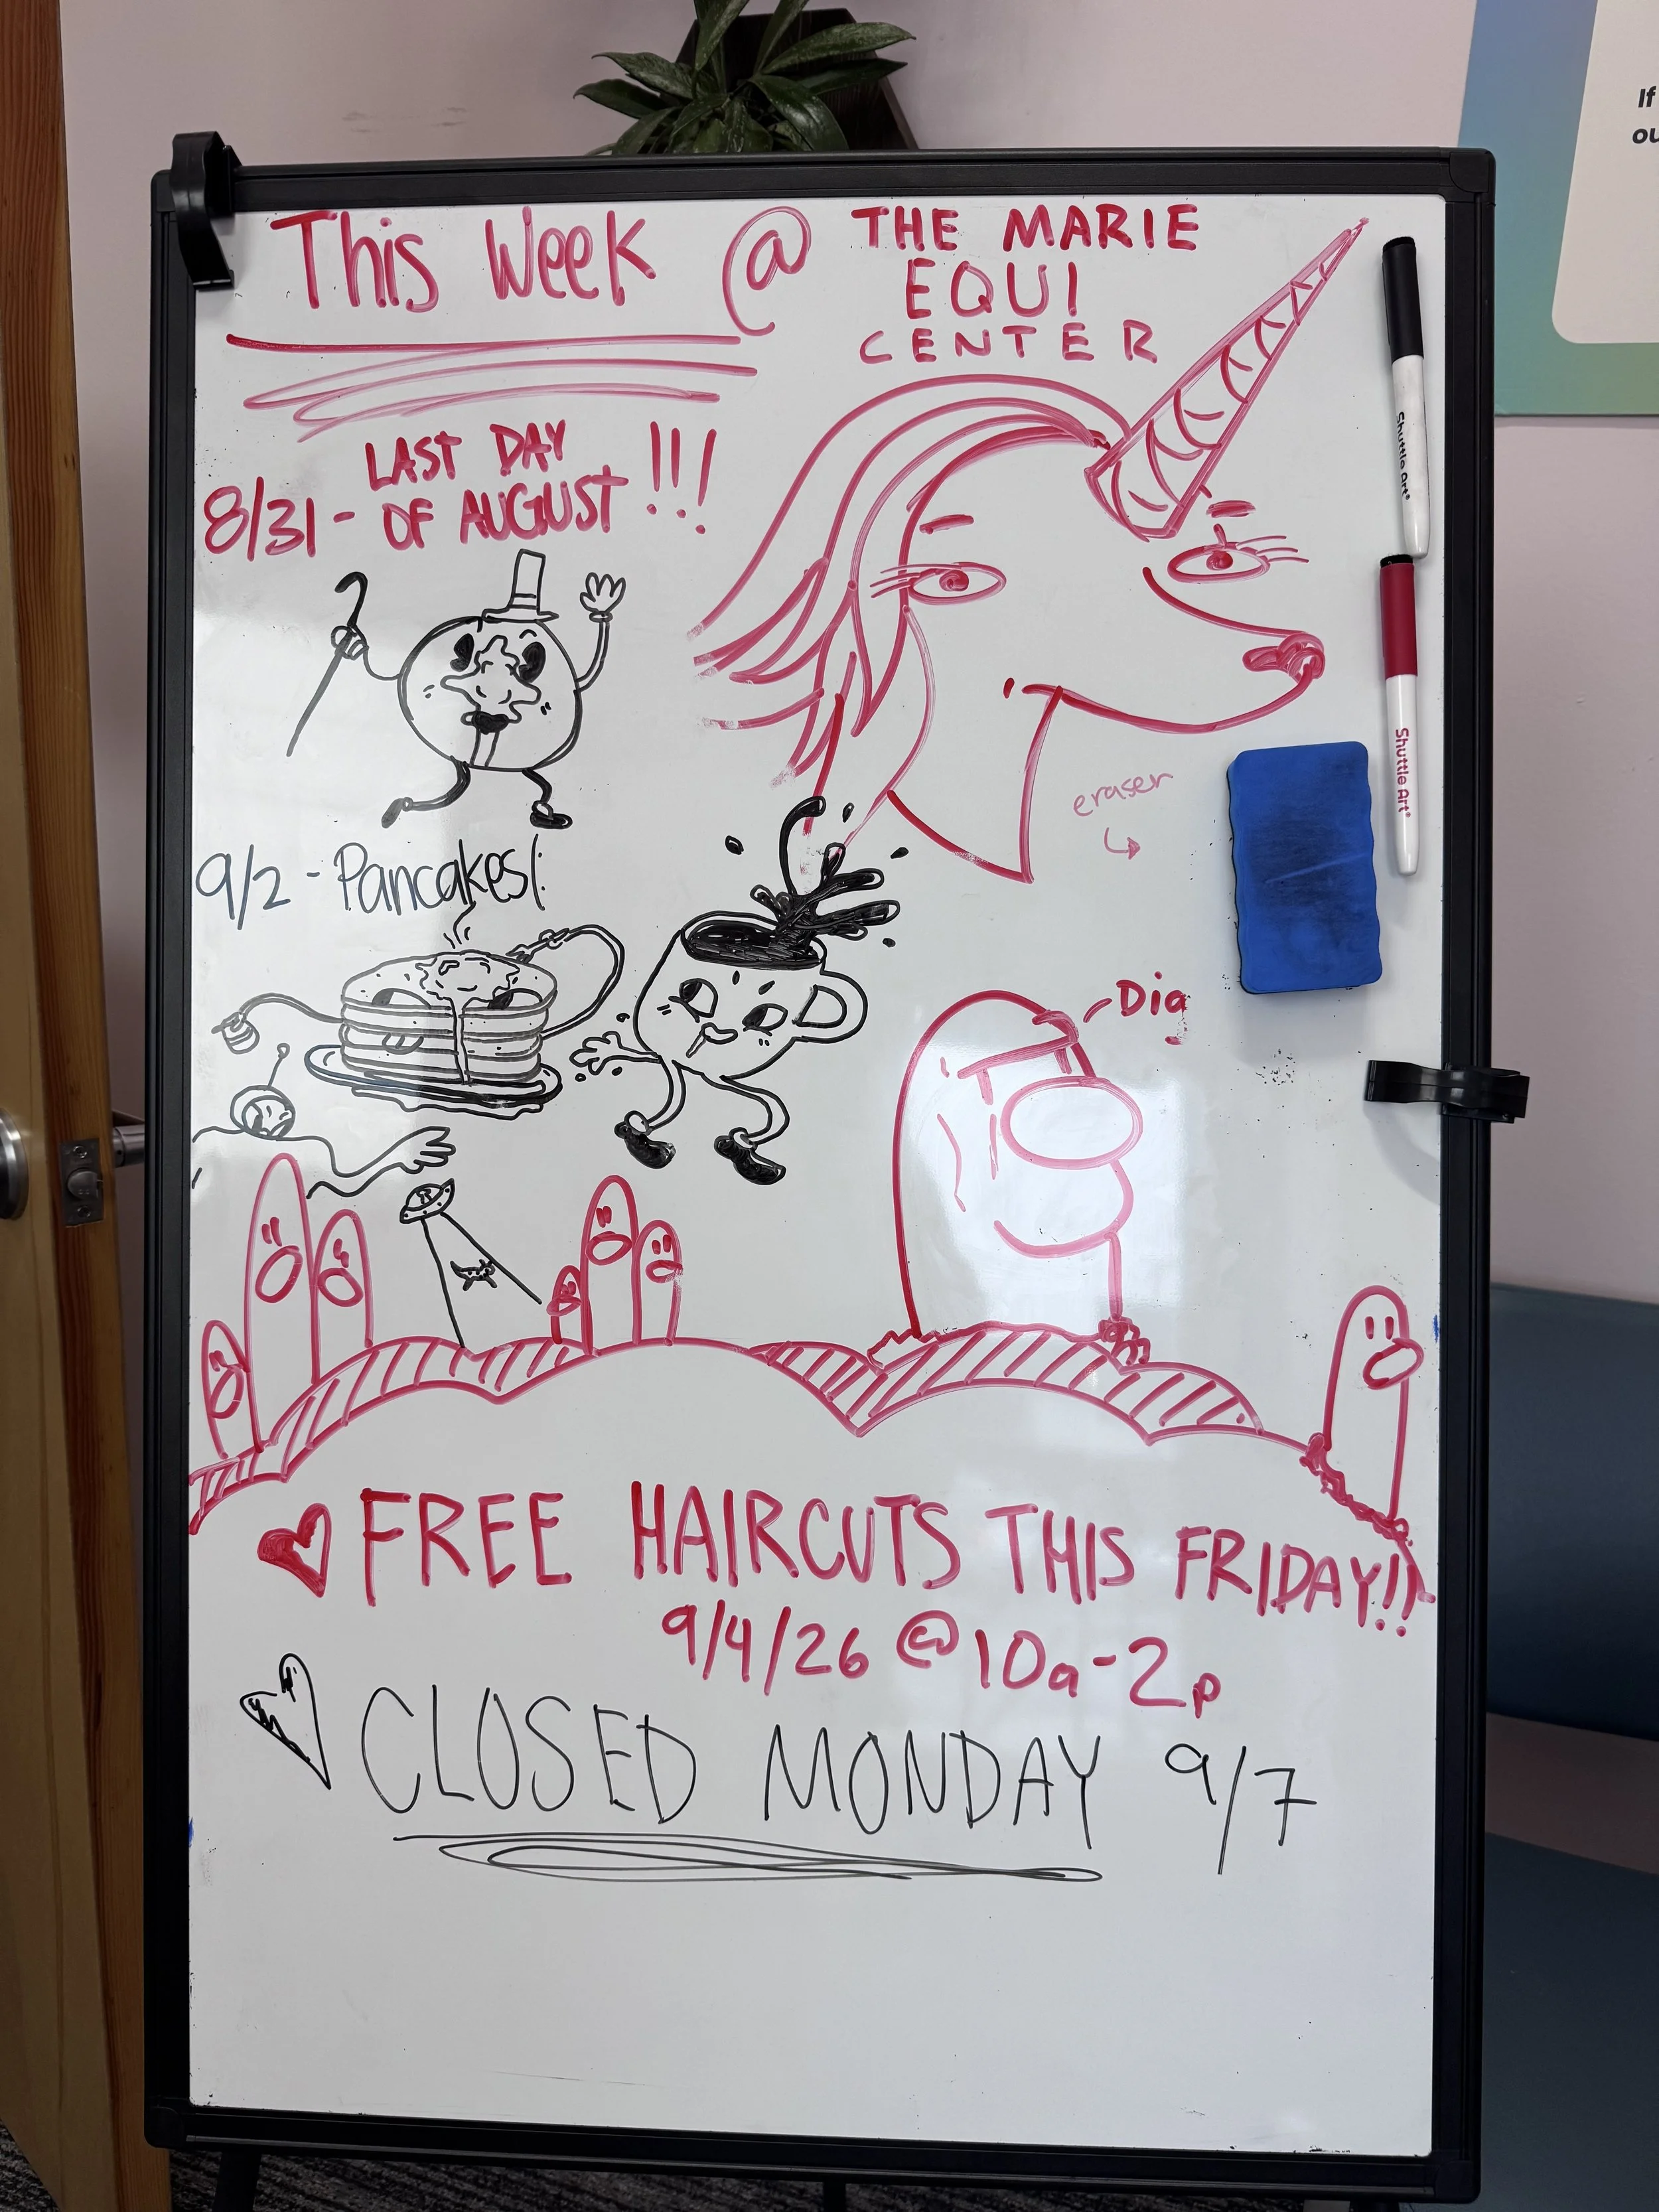 This Week @ THE MARIE
EQUI
CENTER
LAST DAY
8/31 - OF AUGUST !!!
9/2 - Pancakes!
eraser
Dig
FREE HAIRCUTS THIS FRIDAY!!
9/4/26 @ 10a-2p
CLOSED MONDAY 9/7
Shuttle Art
Shuttle Art
If
ou